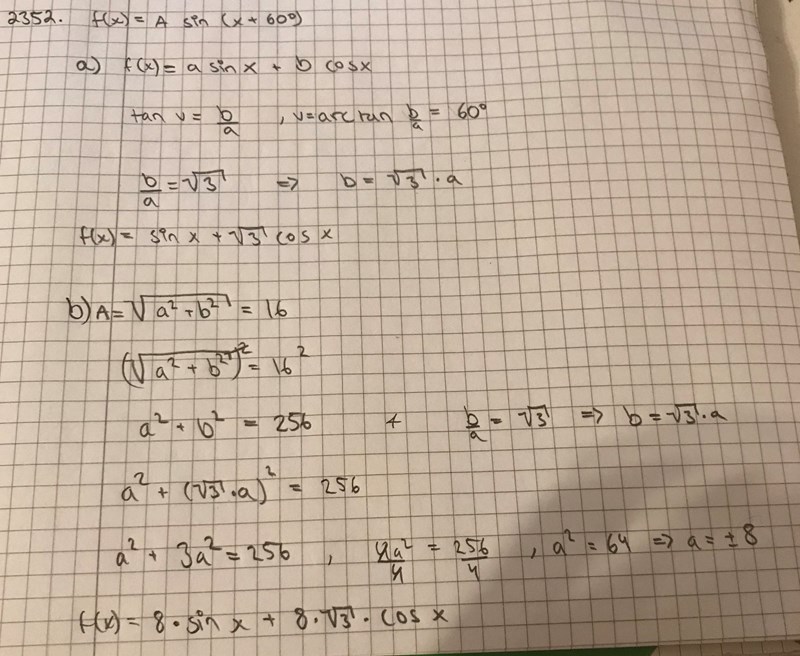 2352. f(x) = A sin (x + 60°)
a) f(x) = a sin x + b cosx
tan v = b/a , v = arctan b/a = 60°
b/a = √3 => b = √3 · a
f(x) = sin x + √3 cos x
b) A = √(a² + b²) = 16
(√(a² + b²))² = 16²
a² + b² = 256 + b/a = √3 => b = √3 · a
a² + (√3 · a)² = 256
a² + 3a² = 256 , 4a²/4 = 256/4 , a² = 64 => a = ±8
f(x) = 8 · sin x + 8 · √3 · cos x